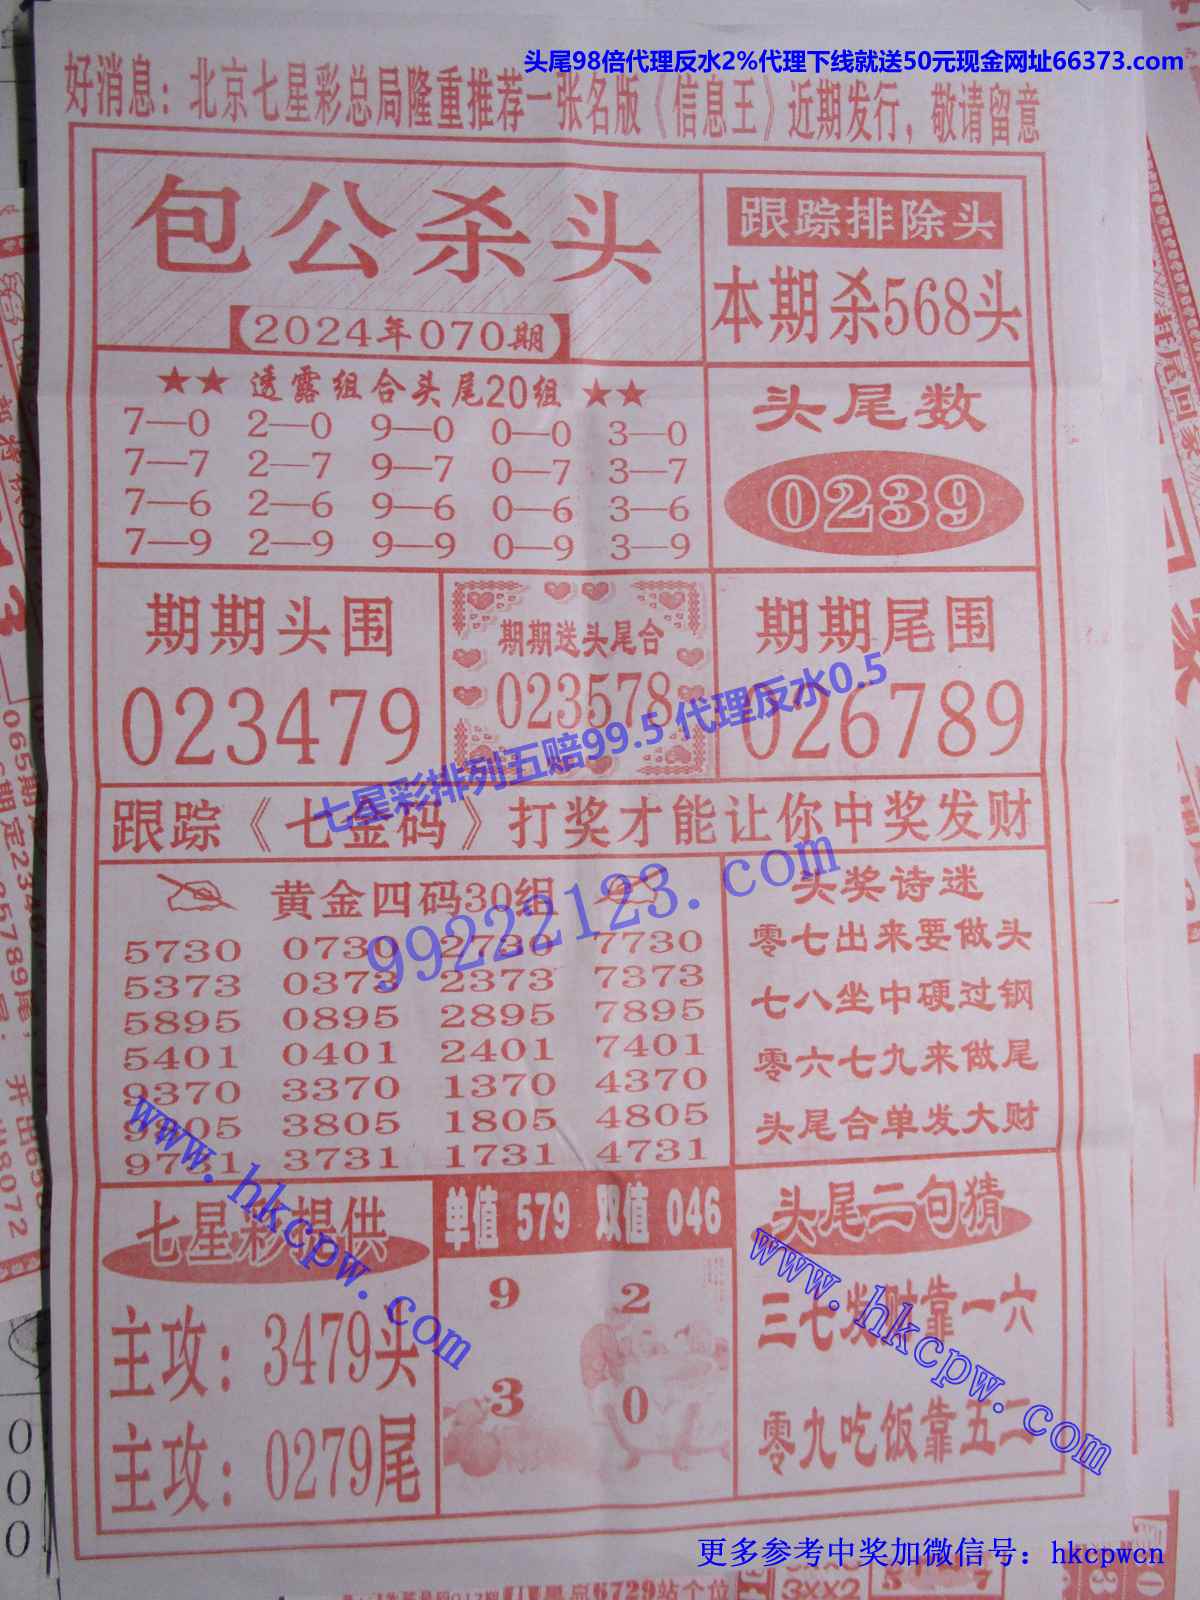 头尾98倍代理反水2%代理下线就送50元现金网址66373.com
好消息：北京七星彩总局隆重推荐一张名版《信息王》近期发行，敬请留意
包公杀头
【2024年070期】
跟踪排除头
本期杀568头
★★ 透露组合头尾20组 ★★
7—0 2—0 9—0 0—0 3—0
7—7 2—7 9—7 0—7 3—7
7—6 2—6 9—6 0—6 3—6
7—9 2—9 9—9 0—9 3—9
头尾数
0239
期期头围
023479
期期送头尾合
023578
期期尾围
026789
七星彩排列五赔99.5 代理反水0.5
跟踪《七金码》打奖才能让你中奖发财
99222123.com
黄金四码30组
5730 0730 2730 7730
5373 0373 2373 7373
5895 0895 2895 7895
5401 0401 2401 7401
9370 3370 1370 4370
9805 3805 1805 4805
9731 3731 1731 4731
头奖诗迷
零七出来要做头
七八坐中硬过钢
零六七九来做尾
头尾合单发大财
www.hkcpw.com
七星彩提供
主攻：3479头
主攻：0279尾
单值 579 双值 046
9 2
3 0
头尾二句猜
三七发财靠一六
零九吃饭靠五二
www.hkcpw.com
更多参考中奖加微信号：hkcpwcn
000